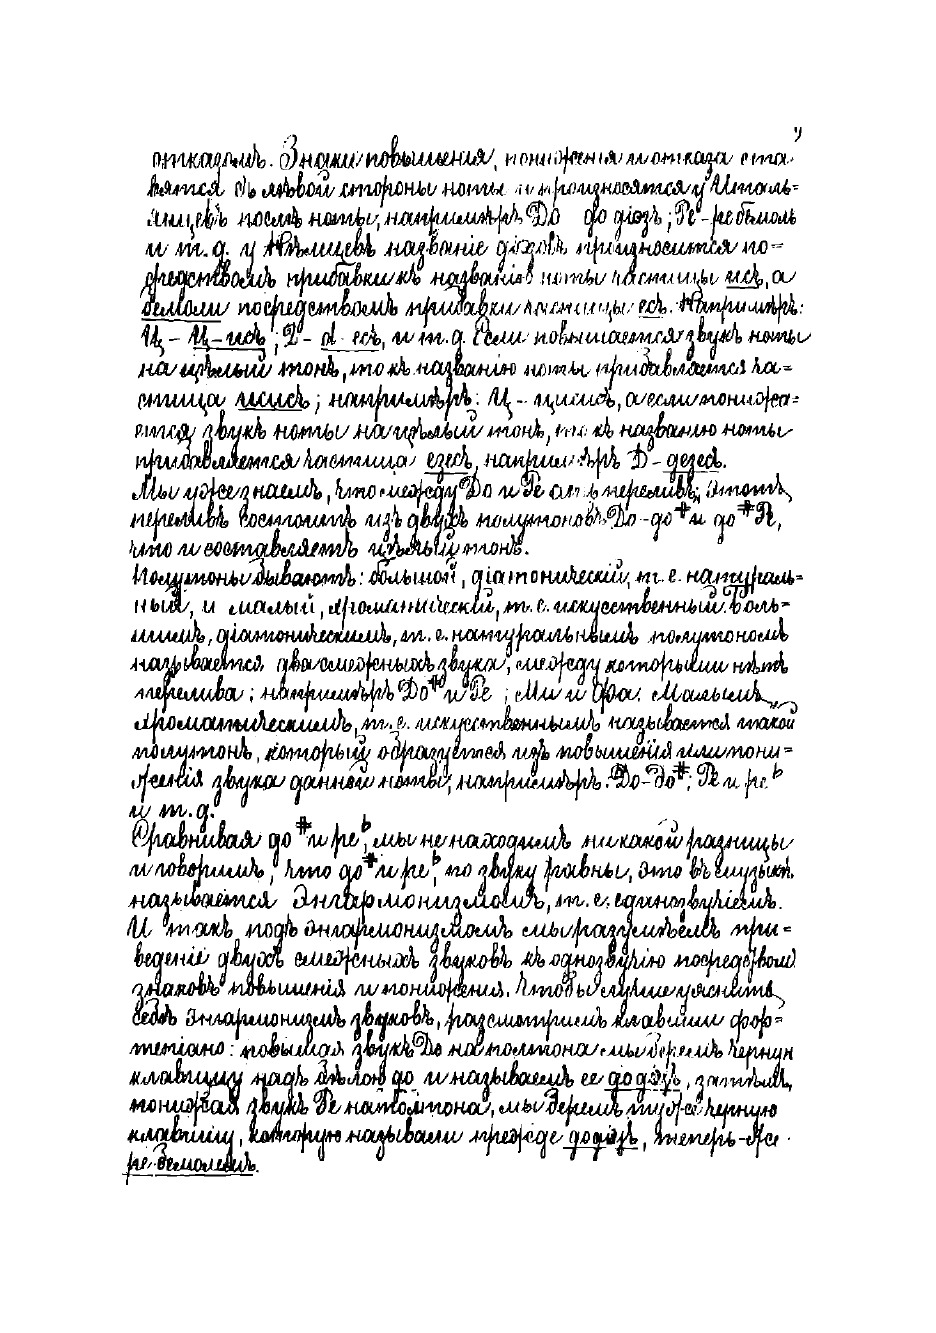 отказомъ. Знаки повышенія, пониженія и отказа ста-
вятся съ лѣвой стороны ноты и произносятся у Италь=
янцевъ послѣ ноты, напримѣръ До до діэзъ; Ре-ре бемоль
и т.д. у Нѣмцевъ названіе діэзовъ произносится по-=
средствомъ прибавки къ названію ноты частицы исъ, а
бемоли посредствомъ прибавки частицы есъ. Напримѣръ:
Ц – Ц-исъ; D- d-есъ, и т.д. Если повышается звукъ ноты
на цѣлый тонъ, то къ названію ноты прибавляется ча=
стица исисъ; напримѣръ: Ц - цисисъ, а если понижа=
ется звукъ ноты на цѣлый тонъ, то къ названію ноты
прибавляется частица езесъ, напримѣръ D - дезесъ.
Мы уже знаемъ, что между До и Ре есть переливъ; этотъ
переливъ состоитъ изъ двухъ полутоновъ До-до# и до# Ре,
что и составляетъ цѣлый тонъ.
Полутоны бываютъ: большой, діатоническій, т.е. натураль=
ный, и малый, хроматическій, т.е. искусственный. Боль=
шимъ, діатоническимъ, т.е. натуральнымъ полутономъ
называется два смежныхъ звука, между которыми нѣтъ
перелива; напримѣръ До# и Ре ; Ми и Фа. Малымъ,
хроматическимъ, т.е. искусственнымъ называется такой
полутонъ, который образуется изъ повышенія или пони=
женія звука данной ноты, напримѣръ: До-До#; Ре и ре♭
и т.д.
Сравнивая до# и ре♭, мы не находимъ никакой разницы
и говоримъ, что до# и ре♭, по звуку равны, это въ музыкѣ
называется Энгармонизмомъ, т.е. единозвучіемъ.
И такъ подъ энгармонизмомъ мы разумѣемъ при=
веденіе двухъ смежныхъ звуковъ къ однозвучію посредствомъ
знаковъ повышенія и пониженія. Чтобы лучше уяснить
себѣ энгармонизмъ звуковъ, разсмотримъ клавиши фор=
тепіано: повышая звукъ До на полтона мы беремъ черную
клавишу надъ бѣлою до и называемъ ее додіэзъ, затѣмъ,
понижая звукъ Ре на полтона, мы беремъ ту же черную
клавишу, которую называли прежде додіэзъ, теперь-же
ре-бемолемъ.